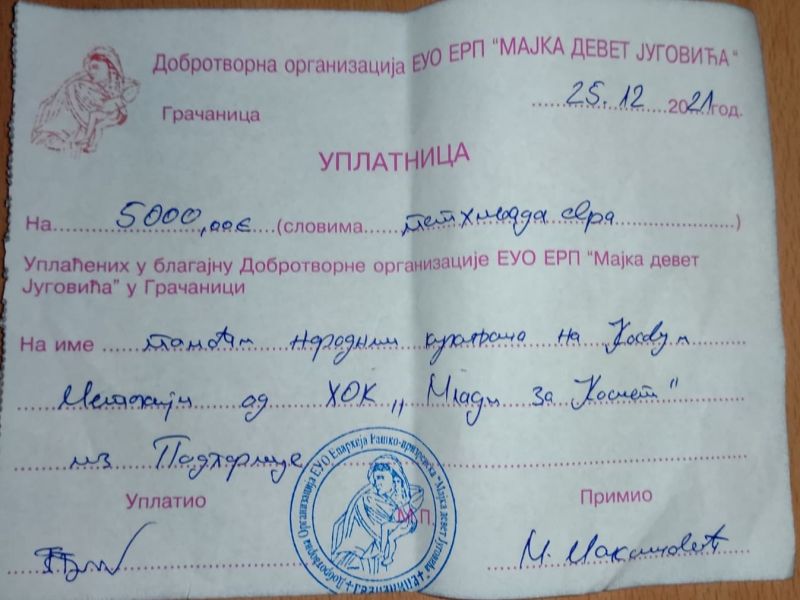 Добротворна организација ЕУО ЕРП "МАЈКА ДЕВЕТ ЈУГОВИЋА"
Грачаница
25.12 2021 год.
УПЛАТНИЦА
На 5000,00€ (словима петхиљада евра)
Уплаћених у благајну Добротворне организације ЕУО ЕРП "Мајка девет
Југовића" у Грачаници
На име помоћи народним кухињама на Косову и
Метохији од ХОК „Млади за Космет"
из Подгорице
Уплатио
М.П.
Примио
М. Максимовић
Добротворна Организација ЕУО Епархија Рашко-призренска "Мајка девет Југовића"